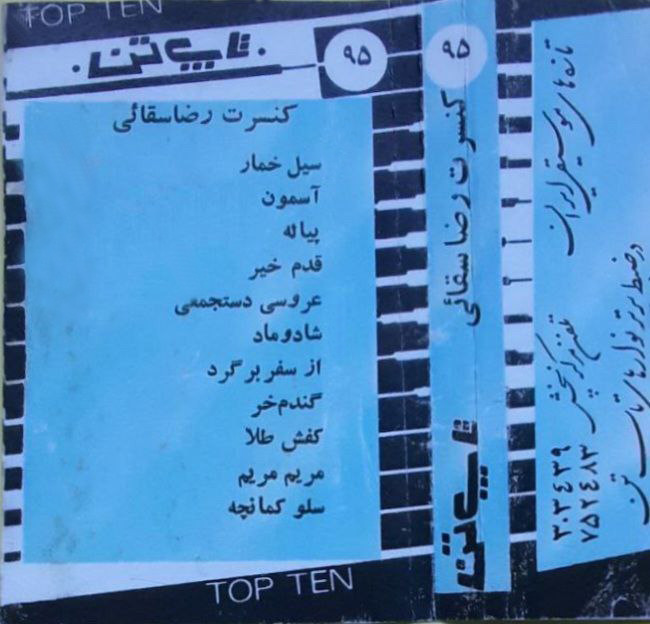 TOP TEN
تاپ تن
۹۵
کنسرت رضاسقائی
سیل خمار
آسمون
پیاله
قدم خیر
عروسی دستجمعی
شادوماد
از سفر برگرد
گندم‌خر
کفش طلا
مریم مریم
سلو کمانچه
TOP TEN
۹۵
کنسرت رضاسقائی
تاپ تن
تازه‌های موسیقی ایران
در ضبط برتر نوارهای تاپ تن
تلفن مرکز پخش
۳۰۳٤۳۹
۷۵۲٤۸۳